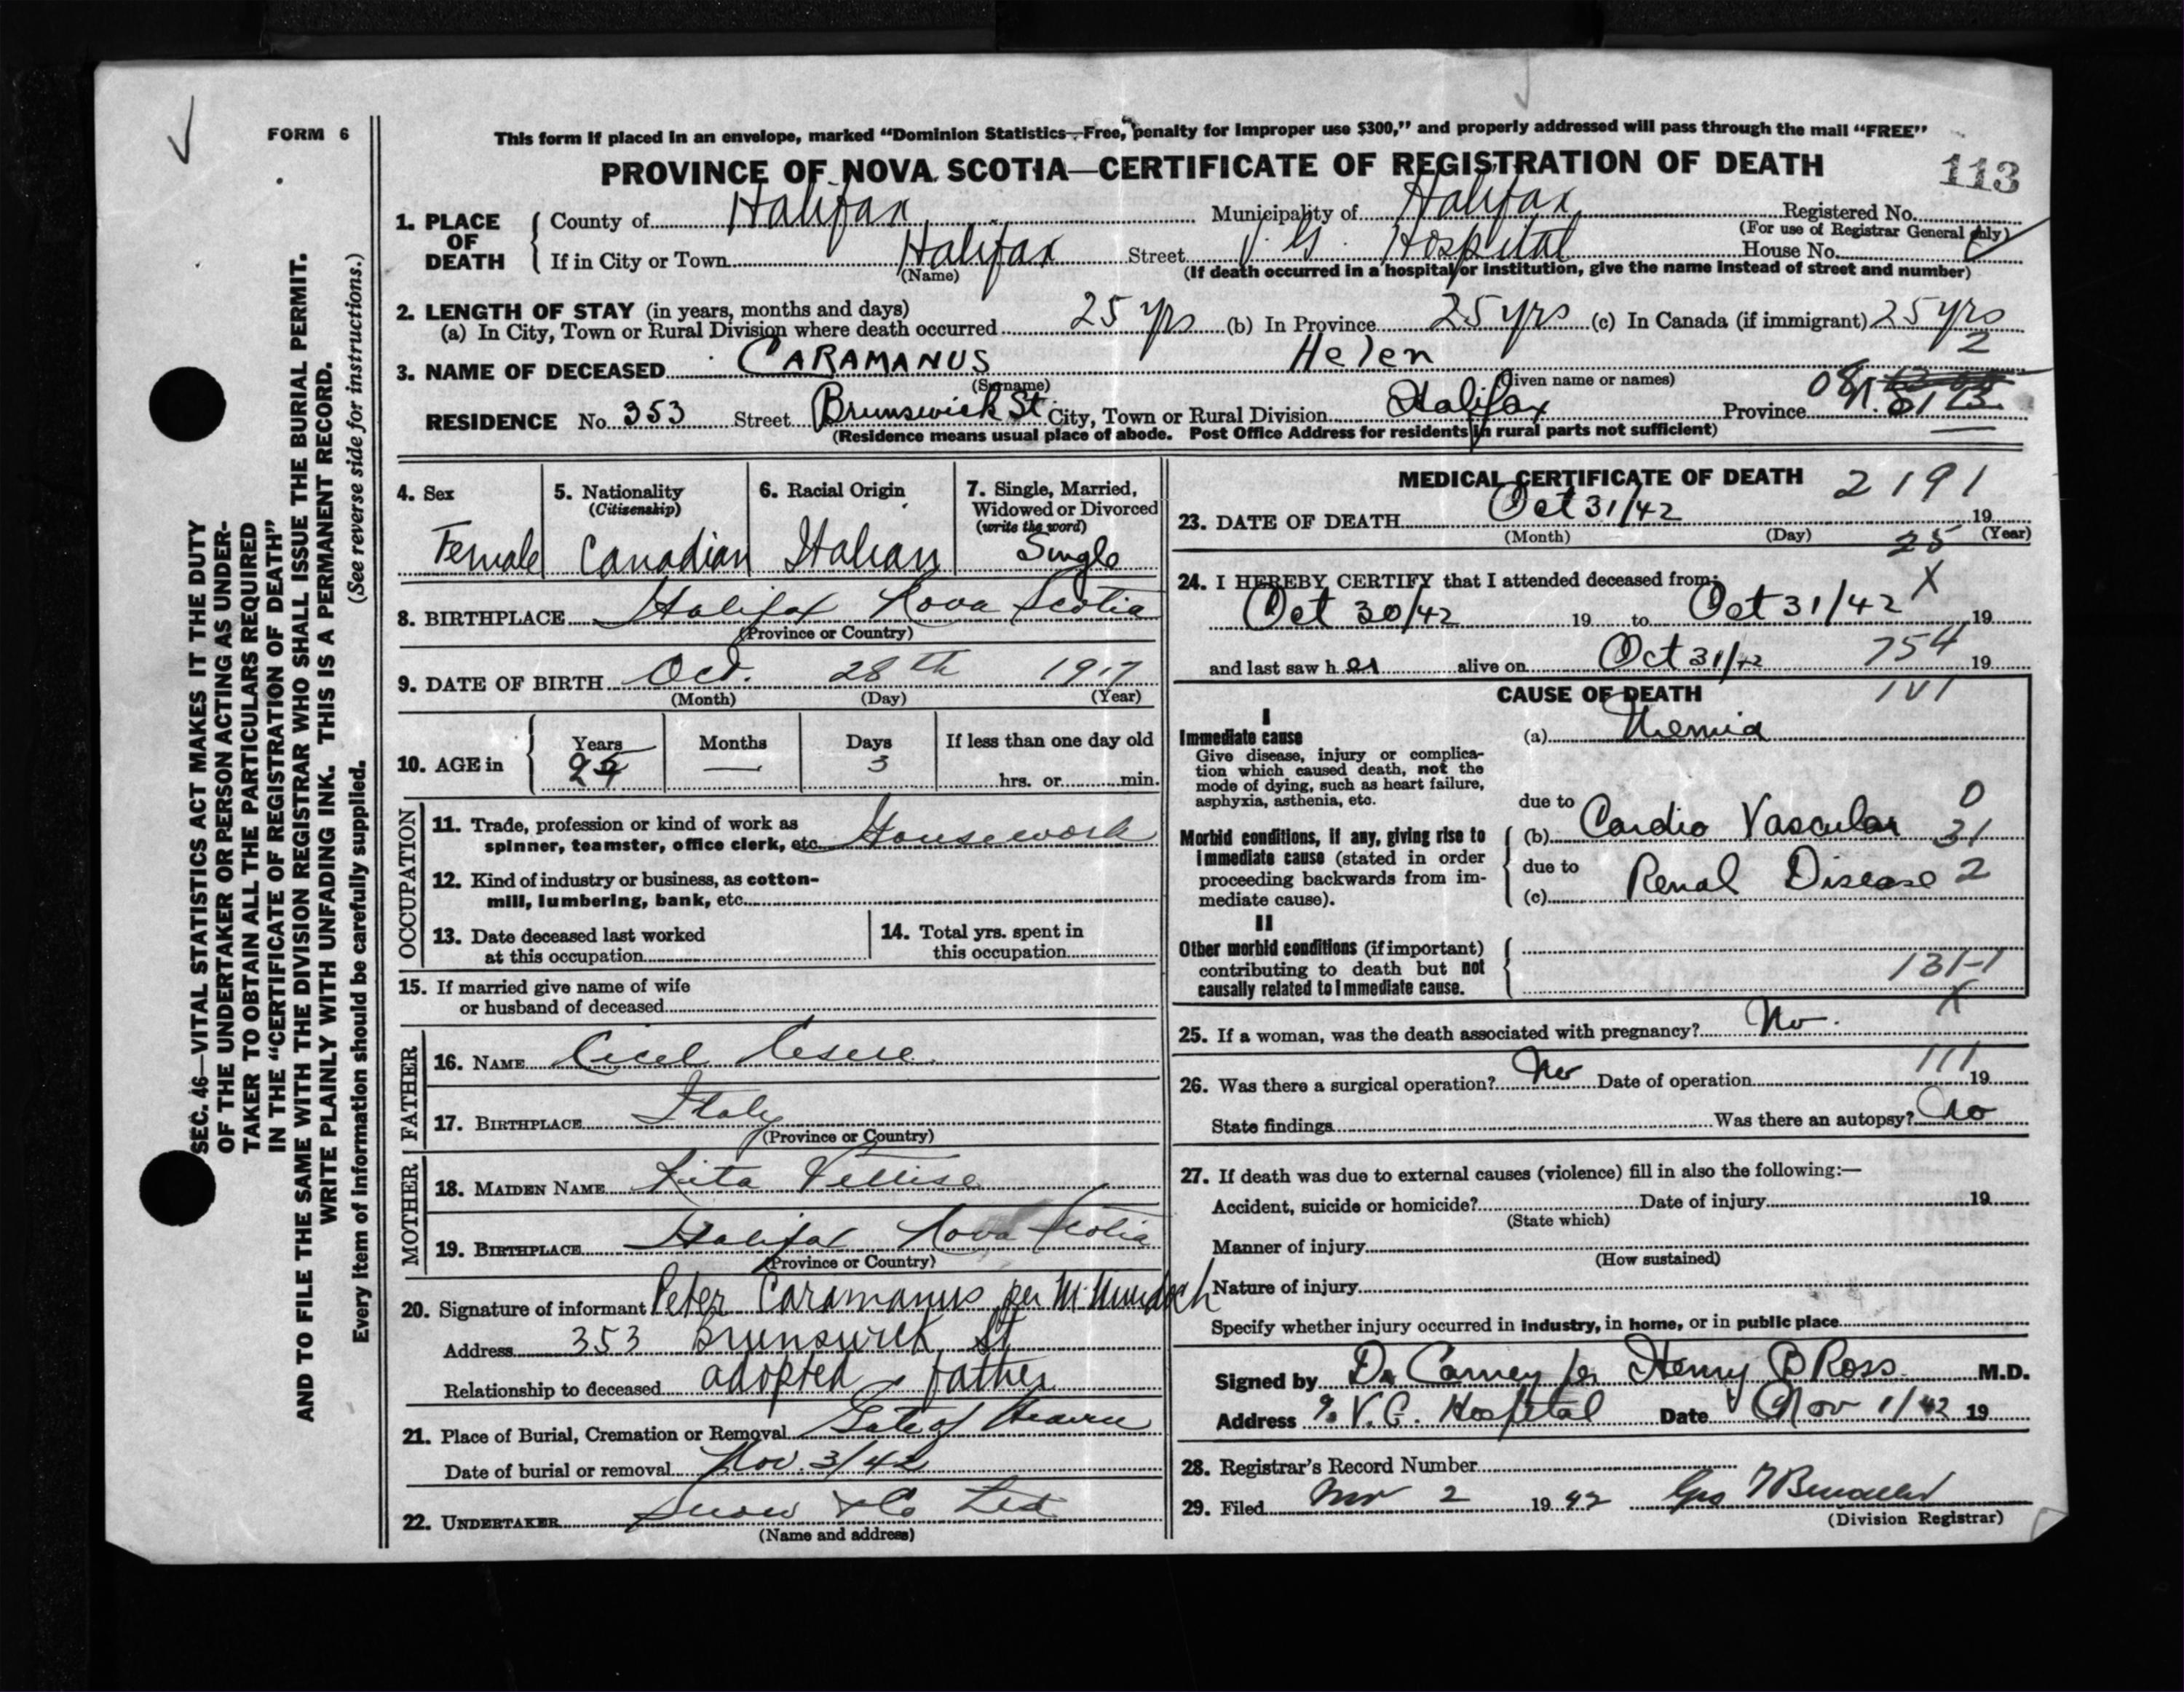 FORM 6
This form if placed in an envelope, marked "Dominion Statistics—Free, penalty for improper use $300," and properly addressed will pass through the mail "FREE"
PROVINCE OF NOVA SCOTIA—CERTIFICATE OF REGISTRATION OF DEATH
113
1. PLACE OF DEATH
County of Halifax Municipality of Halifax Registered No.
(For use of Registrar General only)
If in City or Town Halifax Street V. G. Hospital House No.
(Name) (If death occurred in a hospital or institution, give the name instead of street and number)
2. LENGTH OF STAY (in years, months and days)
(a) In City, Town or Rural Division where death occurred 25 yrs (b) In Province 25 yrs (c) In Canada (if immigrant) 25 yrs
2
3. NAME OF DECEASED CARAMANUS Helen
(Surname) (Given name or names)
RESIDENCE No. 353 Street Brunswick St City, Town or Rural Division Halifax Province
(Residence means usual place of abode. Post Office Address for residents in rural parts not sufficient)
4. Sex
Female
5. Nationality
(Citizenship)
Canadian
6. Racial Origin
Italian
7. Single, Married,
Widowed or Divorced
(write the word)
Single
8. BIRTHPLACE Halifax Nova Scotia
(Province or Country)
9. DATE OF BIRTH Oct. 28th 1917
(Month) (Day) (Year)
10. AGE in
Years Months Days If less than one day old
— 3 hrs. or min.
OCCUPATION
11. Trade, profession or kind of work as
spinner, teamster, office clerk, etc. Housework
12. Kind of industry or business, as cotton-
mill, lumbering, bank, etc.
13. Date deceased last worked
at this occupation
14. Total yrs. spent in
this occupation
15. If married give name of wife
or husband of deceased
FATHER
16. NAME
17. BIRTHPLACE Italy
(Province or Country)
MOTHER
18. MAIDEN NAME Rita
19. BIRTHPLACE Halifax Nova Scotia
(Province or Country)
20. Signature of informant Peter Caramanus per M. Murdoch
Address 353 Brunswick St
Relationship to deceased adopted father
21. Place of Burial, Cremation or Removal Gate of Heaven
Date of burial or removal Nov. 3/42
22. UNDERTAKER Snow & Co Ltd
(Name and address)
MEDICAL CERTIFICATE OF DEATH
2191
23. DATE OF DEATH Oct 31/42 19
(Month) (Day) (Year)
25
24. I HEREBY CERTIFY that I attended deceased from:
X
Oct 30/42 19 to Oct 31/42 19
and last saw her alive on Oct 31/42 19
754
CAUSE OF DEATH
I
Immediate cause
Give disease, injury or complica-
tion which caused death, not the
mode of dying, such as heart failure,
asphyxia, asthenia, etc.
(a) Uremia
due to
0
Morbid conditions, if any, giving rise to
immediate cause (stated in order
proceeding backwards from im-
mediate cause).
(b) Cardio Vascular
31
due to
(c) Renal Disease
2
II
Other morbid conditions (if important)
contributing to death but not
causally related to immediate cause.
131-1
X
25. If a woman, was the death associated with pregnancy? No.
111
26. Was there a surgical operation? No Date of operation 19
State findings Was there an autopsy? No
27. If death was due to external causes (violence) fill in also the following:—
Accident, suicide or homicide? Date of injury 19
(State which)
Manner of injury
(How sustained)
Nature of injury
Specify whether injury occurred in industry, in home, or in public place
Signed by Dr Carney per Henry B Ross M.D.
Address % V.G. Hospital Date Nov 1/42 19
28. Registrar's Record Number
29. Filed Nov 2 1942
(Division Registrar)
SEC. 46—VITAL STATISTICS ACT MAKES IT THE DUTY
OF THE UNDERTAKER OR PERSON ACTING AS UNDER-
TAKER TO OBTAIN ALL THE PARTICULARS REQUIRED
IN THE "CERTIFICATE OF REGISTRATION OF DEATH"
AND TO FILE THE SAME WITH THE DIVISION REGISTRAR WHO SHALL ISSUE THE BURIAL PERMIT.
WRITE PLAINLY WITH UNFADING INK. THIS IS A PERMANENT RECORD.
Every item of information should be carefully supplied. (See reverse side for instructions.)